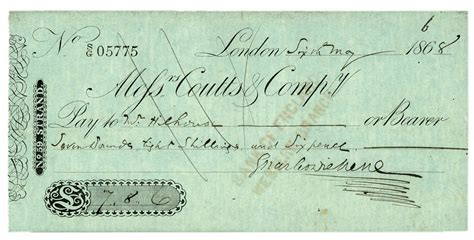 6
No S/G 05775 London Sixth May 1868
Messrs Coutts & Compy
Pay to Mr or Bearer
Seven Pounds Eight Shillings and Sixpence
7. 8. 6
No. 59, STRAND.